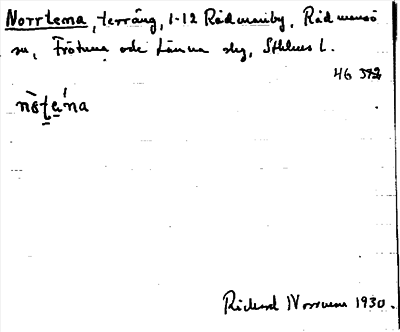 Norrtema, terräng, 1-12 Rådmanby, Rådmansö
sn, Frötuna och Länna slg, Sthlms L.
46 392
Rickard Norrman 1930.